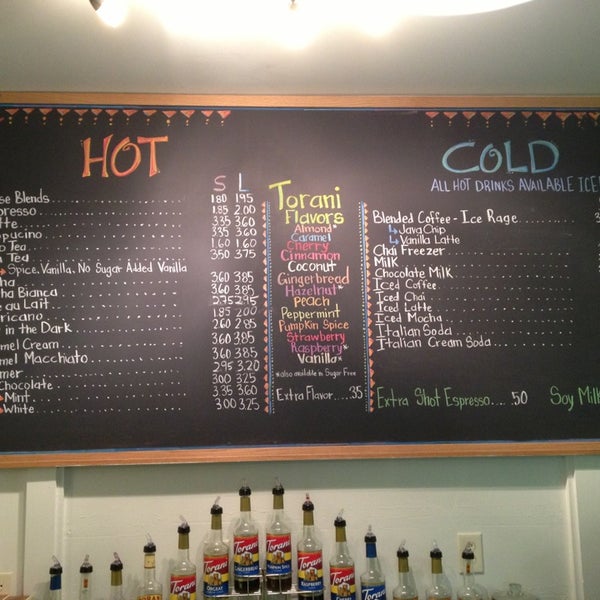 HOT
S L
se Blends 1.80 1.95
presso 1.85 2.00
tte 3.35 3.60
ppucino 3.35 3.60
o Tea 1.60 1.60
n Tea 3.50 3.75
Spice, Vanilla, No Sugar Added Vanilla
ha 3.60 3.85
ha Bianca 3.60 3.85
e au Lait 2.75 2.95
ricano 1.85 2.00
in the Dark 2.60 2.85
mel Cream 3.60 3.85
mel Macchiato 3.60 3.85
mer 2.95 3.20
Chocolate 3.00 3.25
Mint 3.35 3.60
White 3.00 3.25
Torani
Flavors
Almond*
Caramel
Cherry
Cinnamon
Coconut
Gingerbread
Hazelnut*
Peach
Peppermint
Pumpkin Spice
Strawberry
Raspberry*
Vanilla*
*also available in Sugar Free
Extra Flavor....35
COLD
ALL HOT DRINKS AVAILABLE ICE
Blended Coffee - Ice Rage
Java Chip
Vanilla Latte
Chai Freezer
Milk
Chocolate Milk
Iced Coffee
Iced Chai
Iced Latte
Iced Mocha
Italian Soda
Italian Cream Soda
Extra Shot Espresso.....50
Soy Milk
Torani
Torani
Torani
GINGERBREAD
Torani
PUMPKIN SPICE
Torani
RASPBERRY
Torani